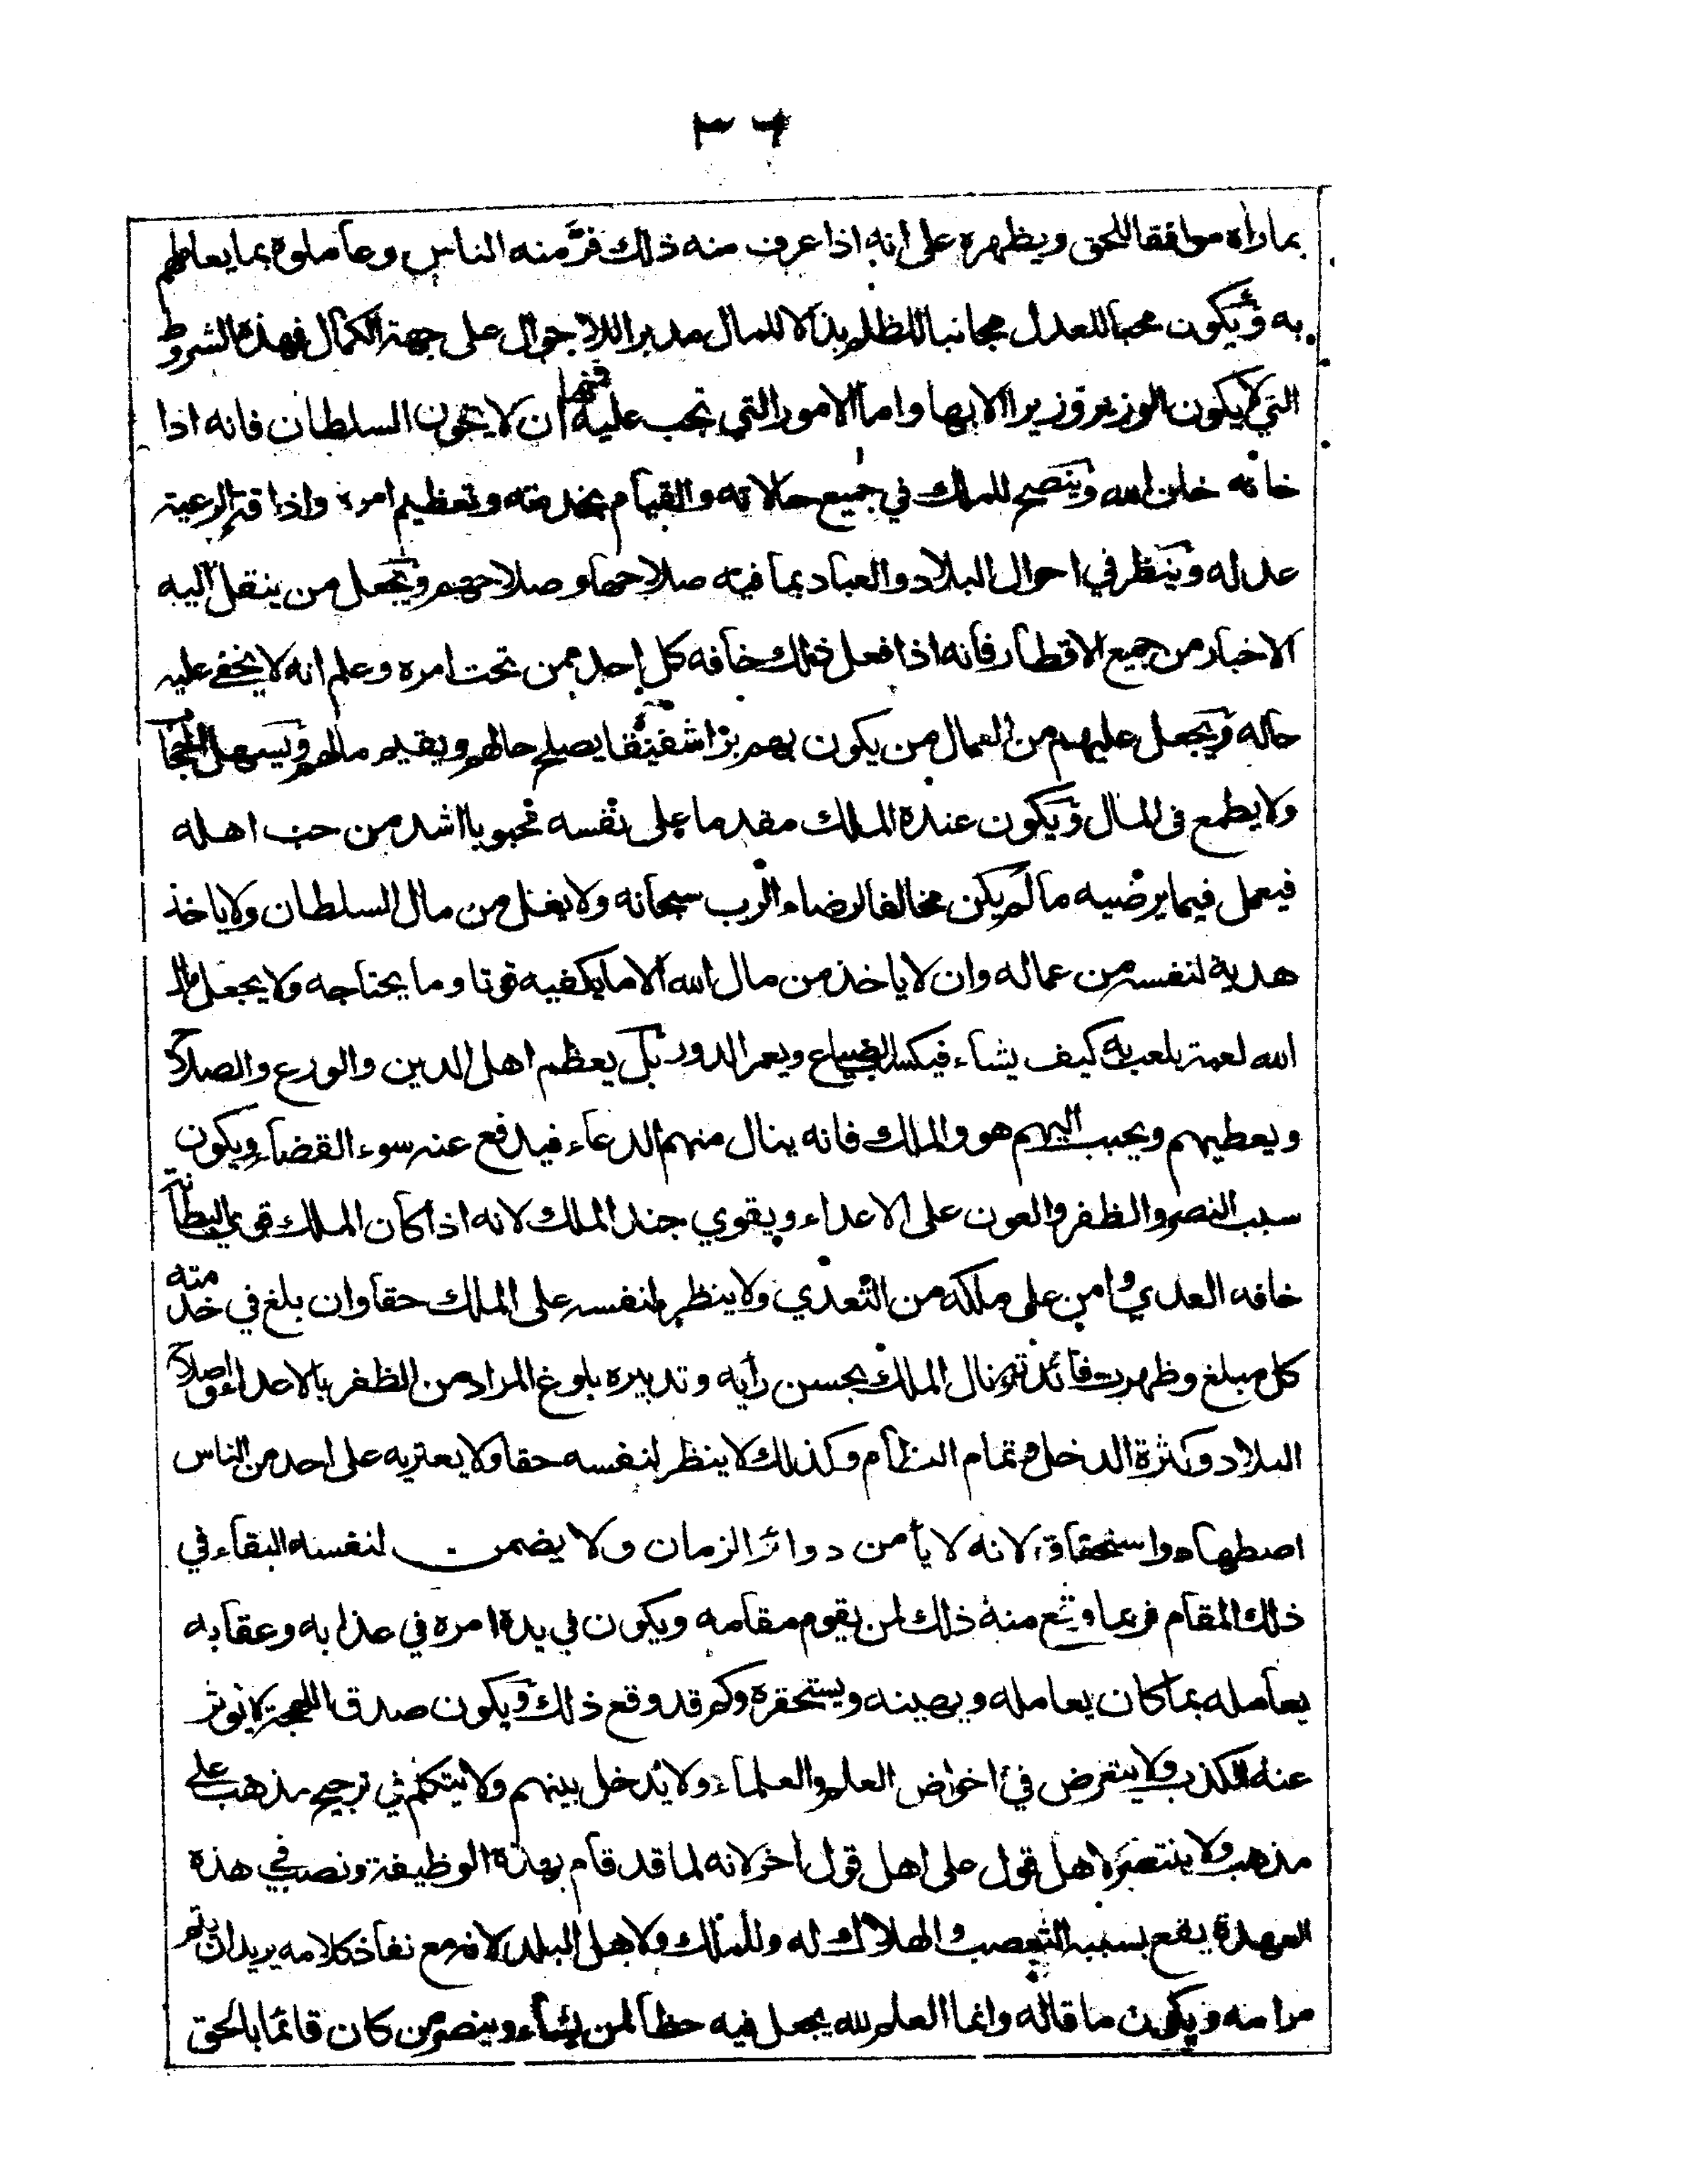 ٣٦
بما رآه موافقا للحق ويظهره على انه اذا عرف منه ذلك فرّ منه الناس وعاملوه بما يعاملهم
به ويكون محبا للعدل مجانبا للظلم بذالا للمال مدبرا للاحوال على جهة الكمال فهذه الشروط
التي لا يكون الوزير وزيرا الا بها واما الامور التي تجب عليه فمنها ان لا يخون السلطان فانه اذا
خانه خان الله وينصح للملك في جميع حالاته والقيام بخدمته وتعظيم امره واذا الرعية
عدله وينظر في احوال البلاد والعباد بما فيه صلاحها وصلاحهم ويجعل من ينقل اليه
الاخبار من جميع الاقطار فانه اذا فعل ذلك خافه كل احد ممن تحت امره وعلم انه لا يخفى عليه
حاله ويجعل عليهم من العمال من يكون بهم برا شفيقا يصلح حالهم ويقيم مالهم ويسهل
ولا يطمع في المال ويكون عنده الملك مقدما على نفسه محبوبا اشد من حب اهله
فيعمل فيما يرضيه ما لم يكن مخالفا لرضاء الرب سبحانه ولا يغل من مال السلطان ولا ياخذ
هدية لنفسه من عماله وان لا ياخذ من مال الله الا ما يكفيه قوتا وما يحتاجه ولا يجعل مال
الله لعبة يلعب به كيف يشاء فيكسب الضياع ويعمر الدور بل يعظم اهل الدين والورع والصلاح
ويعطيهم ويحبب اليهم هو والملك فانه ينال منهم الدعاء فيدفع عنه سوء القضاء ويكون
سبب النصر والظفر والعون على الاعداء ويقوي جند الملك لانه اذا كان الملك قوي البطانة
خافه العدو وامن على ملكه من التعدي ولا ينظر لنفسه على الملك حقا وان بلغ في خدمته
كل مبلغ وظهرت فائدته ونال الملك بحسن رأيه وتدبيره بلوغ المراد من الظفر بالاعداء واصلاح
البلاد وكثرة الدخل وتمام النظام وكذلك لا ينظر لنفسه حقا ولا يعتريه على احد من الناس
اصطهاد واستحقاق لانه لا يأمن دوائر الزمان ولا يضمن لنفسه البقاء في
ذلك المقام فربما وقع منه ذلك لمن يقوم مقامه ويكون في يده امره في عذابه وعقابه
يعامله بما كان يعامله ويهينه ويستحقره وكم قد وقع ذلك ويكون صدق اللهجة لا يوثر
عنه الكذب ولا يتعرض في اخواض العلم والعلماء ولا يدخل بينهم ولا يتكلم في ترجيح مذهب على
مذهب ولا ينتصر لاهل قول على اهل قول اخر لانه لما قد قام بهذه الوظيفة ونصب في هذه
العهدة يقع بسببه التعصب والهلاك له وللملك ولاهل البلد لانه مع نفاذ كلامه يريد ان يتم
مرامه ويكون ما قاله وانما العلم لله يجعل فيه حظا لمن يشاء وينصر من كان قائما بالحق